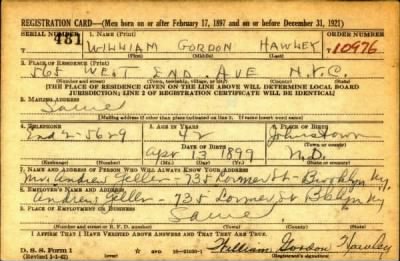 REGISTRATION CARD—(Men born on or after February 17, 1897 and on or before December 31, 1921)
SERIAL NUMBER 1. NAME (Print) ORDER NUMBER
481 WILLIAM GORDON HAWLEY 10976
(First) (Middle) (Last)
2. PLACE OF RESIDENCE (Print)
565 WEST END AVE N.Y.C.
(Number and street) (Town, township, village, or city) (County) (State)
[THE PLACE OF RESIDENCE GIVEN ON THE LINE ABOVE WILL DETERMINE LOCAL BOARD
JURISDICTION; LINE 2 OF REGISTRATION CERTIFICATE WILL BE IDENTICAL]
3. MAILING ADDRESS
Same
[Mailing address if other than place indicated on line 2. If same insert word same]
4. TELEPHONE 5. AGE IN YEARS 6. PLACE OF BIRTH
End 2-5629 42 Johnstown
DATE OF BIRTH (Town or county)
Apr 13 1899 N.D.
(Exchange) (Number) (Mo.) (Day) (Yr.) (State or country)
7. NAME AND ADDRESS OF PERSON WHO WILL ALWAYS KNOW YOUR ADDRESS
Mr Andrew Geller - 735 Lorimer St - Brooklyn Ny.
8. EMPLOYER'S NAME AND ADDRESS
Andrew Geller - 735 Lorimer St Bklyn Ny
9. PLACE OF EMPLOYMENT OR BUSINESS
Same
(Number and street or R. F. D. number) (Town) (County) (State)
I AFFIRM THAT I HAVE VERIFIED ABOVE ANSWERS AND THAT THEY ARE TRUE.
D. S. S. Form 1 William Gordon Hawley